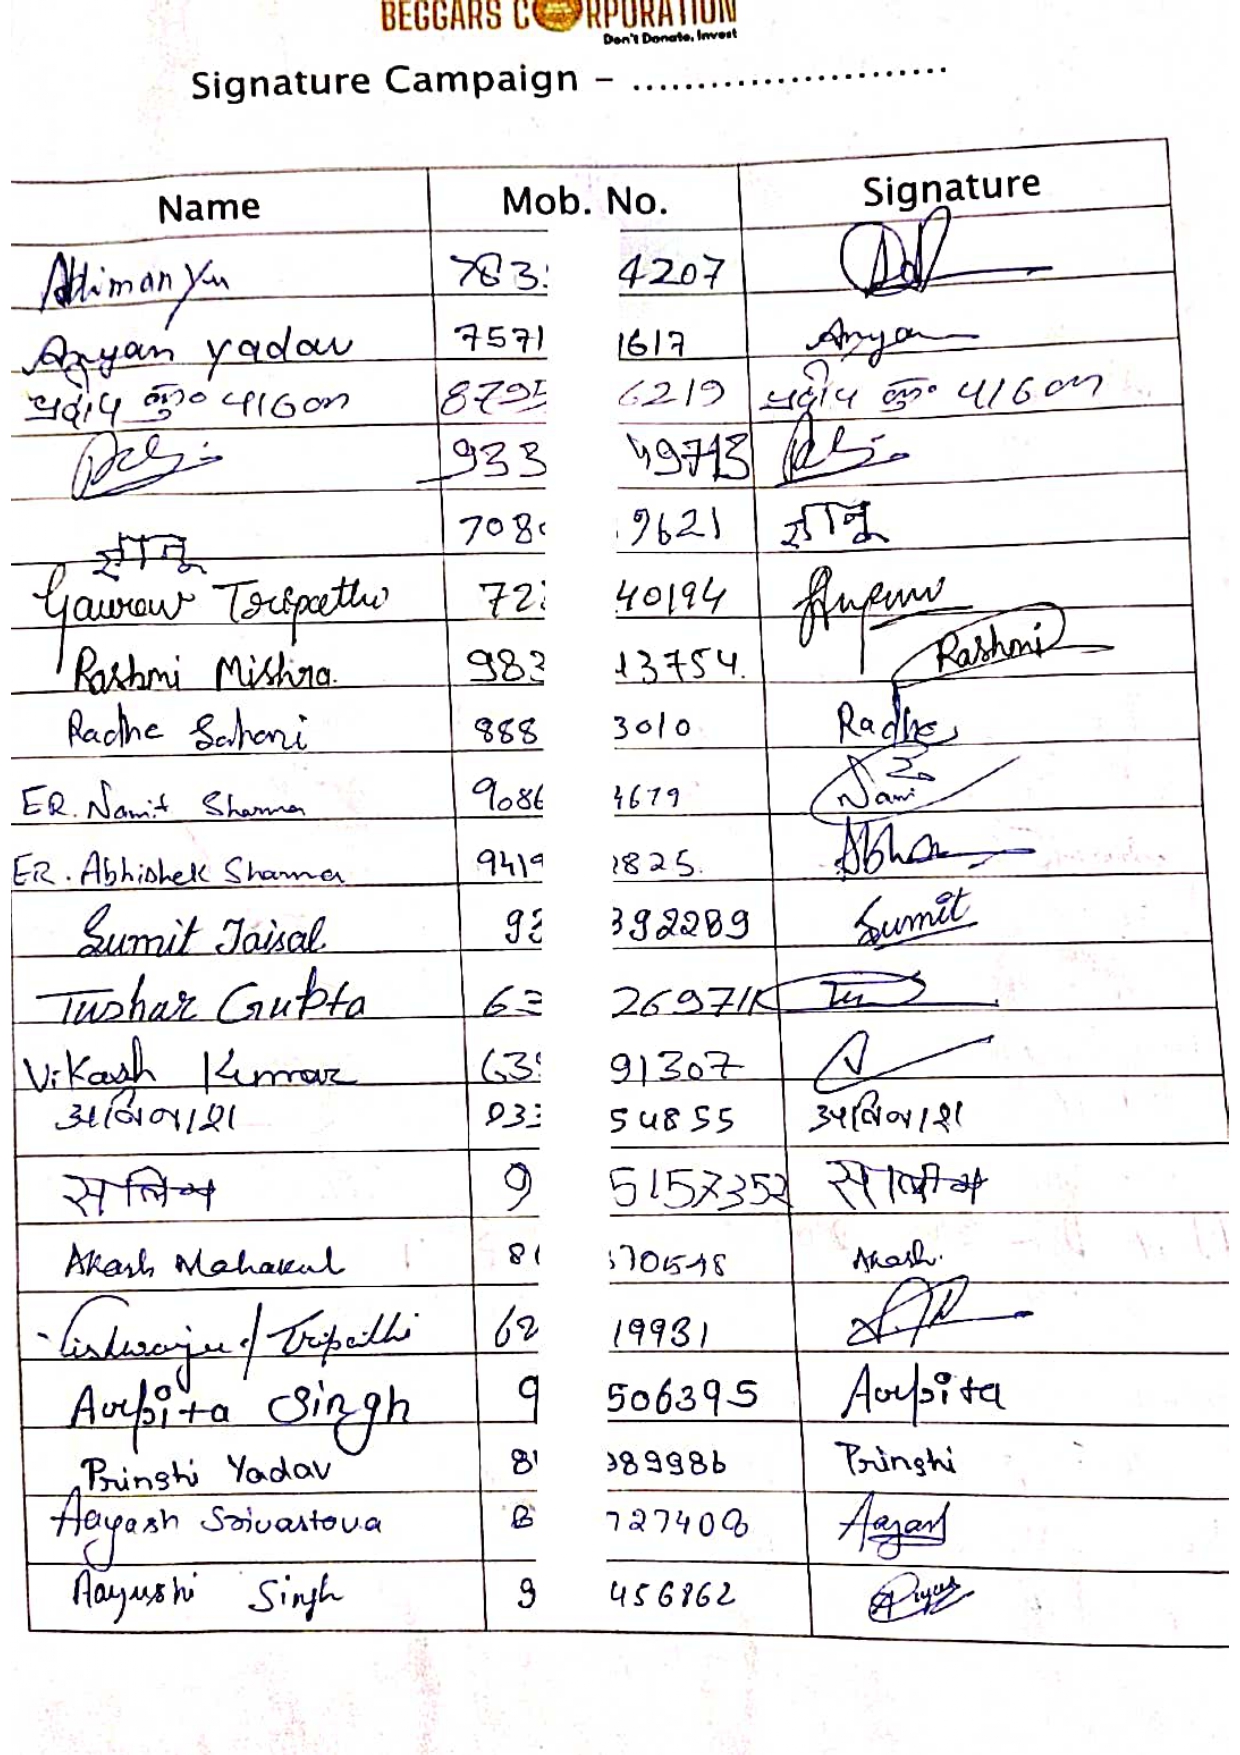 BEGGARS CORPORATION
Don't Donate, Invest
Signature Campaign – ........................
Name Mob. No. Signature
Abhimanyu 783 4207
Aryan yadav 7571 1617 Aryan
प्रदीप कु० पाठक 8795 6219 प्रदीप कु० पाठक
933 49713
ज्ञानू 708 9621 ज्ञानू
Gaurav Tripathi 72 40194
Rashmi Mishra. 983 13754. Rashmi
Radhe Sahani 888 3010 Radhe
ER. Namit Sharma 9086 4679 Nami
ER. Abhishek Sharma 9419 2825. Abha
Sumit Jaisal 93 392289 Sumit
Tushar Gupta 63 26971 Tu
Vikash Kumar 639 91307
अविनाश 933 54855 अविनाश
सलिम 9 5157352 सालीम
Akash Mahakul 8 70548 Akash.
Vishwajeet Tripathi 62 19931
Arpita Singh 9 506395 Arpita
Prinshi Yadav 8 89986 Prinshi
Aayash Srivastava 8 727408 Aayash
Aayushi Singh 9 456862